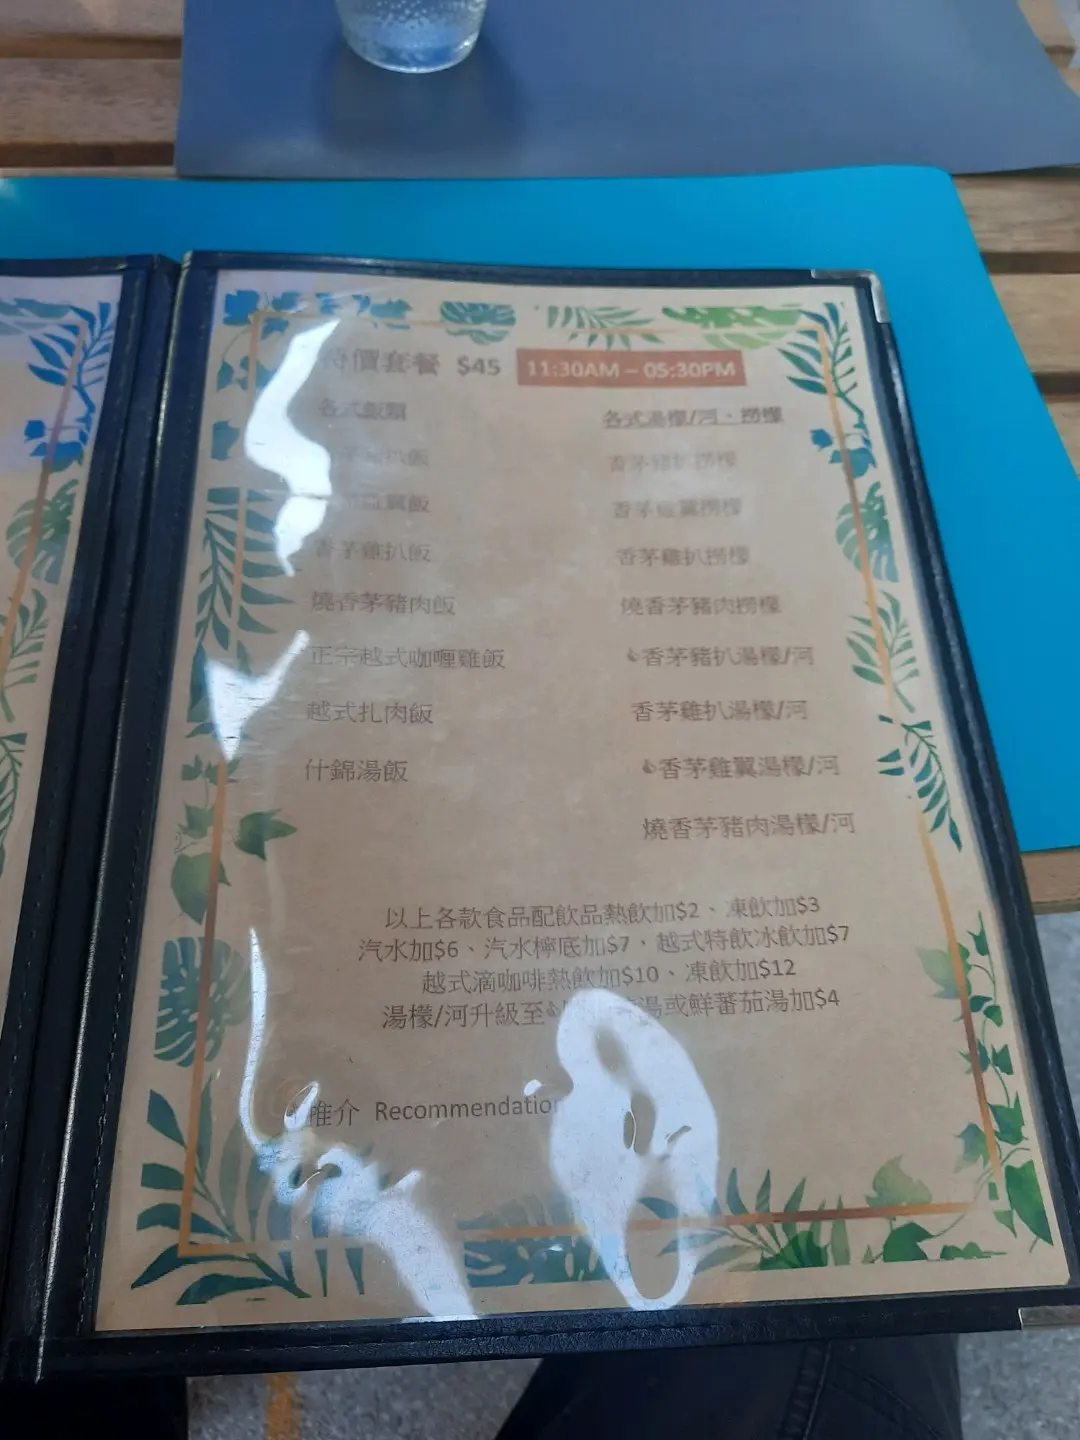 特價套餐 $45 11:30AM – 05:30PM
各式飯類
各式湯檬/河、撈檬
扒飯
翼飯
香茅雞扒飯
燒香茅豬肉飯
正宗越式咖喱雞飯
越式扎肉飯
什錦湯飯
香茅豬扒撈檬
香茅雞翼撈檬
香茅雞扒撈檬
燒香茅豬肉撈檬
香茅豬扒湯檬/河
香茅雞扒湯檬/河
香茅雞翼湯檬/河
燒香茅豬肉湯檬/河
以上各款食品配飲品熱飲加$2、凍飲加$3
汽水加$6、汽水檸底加$7，越式特飲冰飲加$7
越式滴咖啡熱飲加$10、凍飲加$12
湯檬/河升級至 湯或鮮蕃茄湯加$4
推介 Recommendation